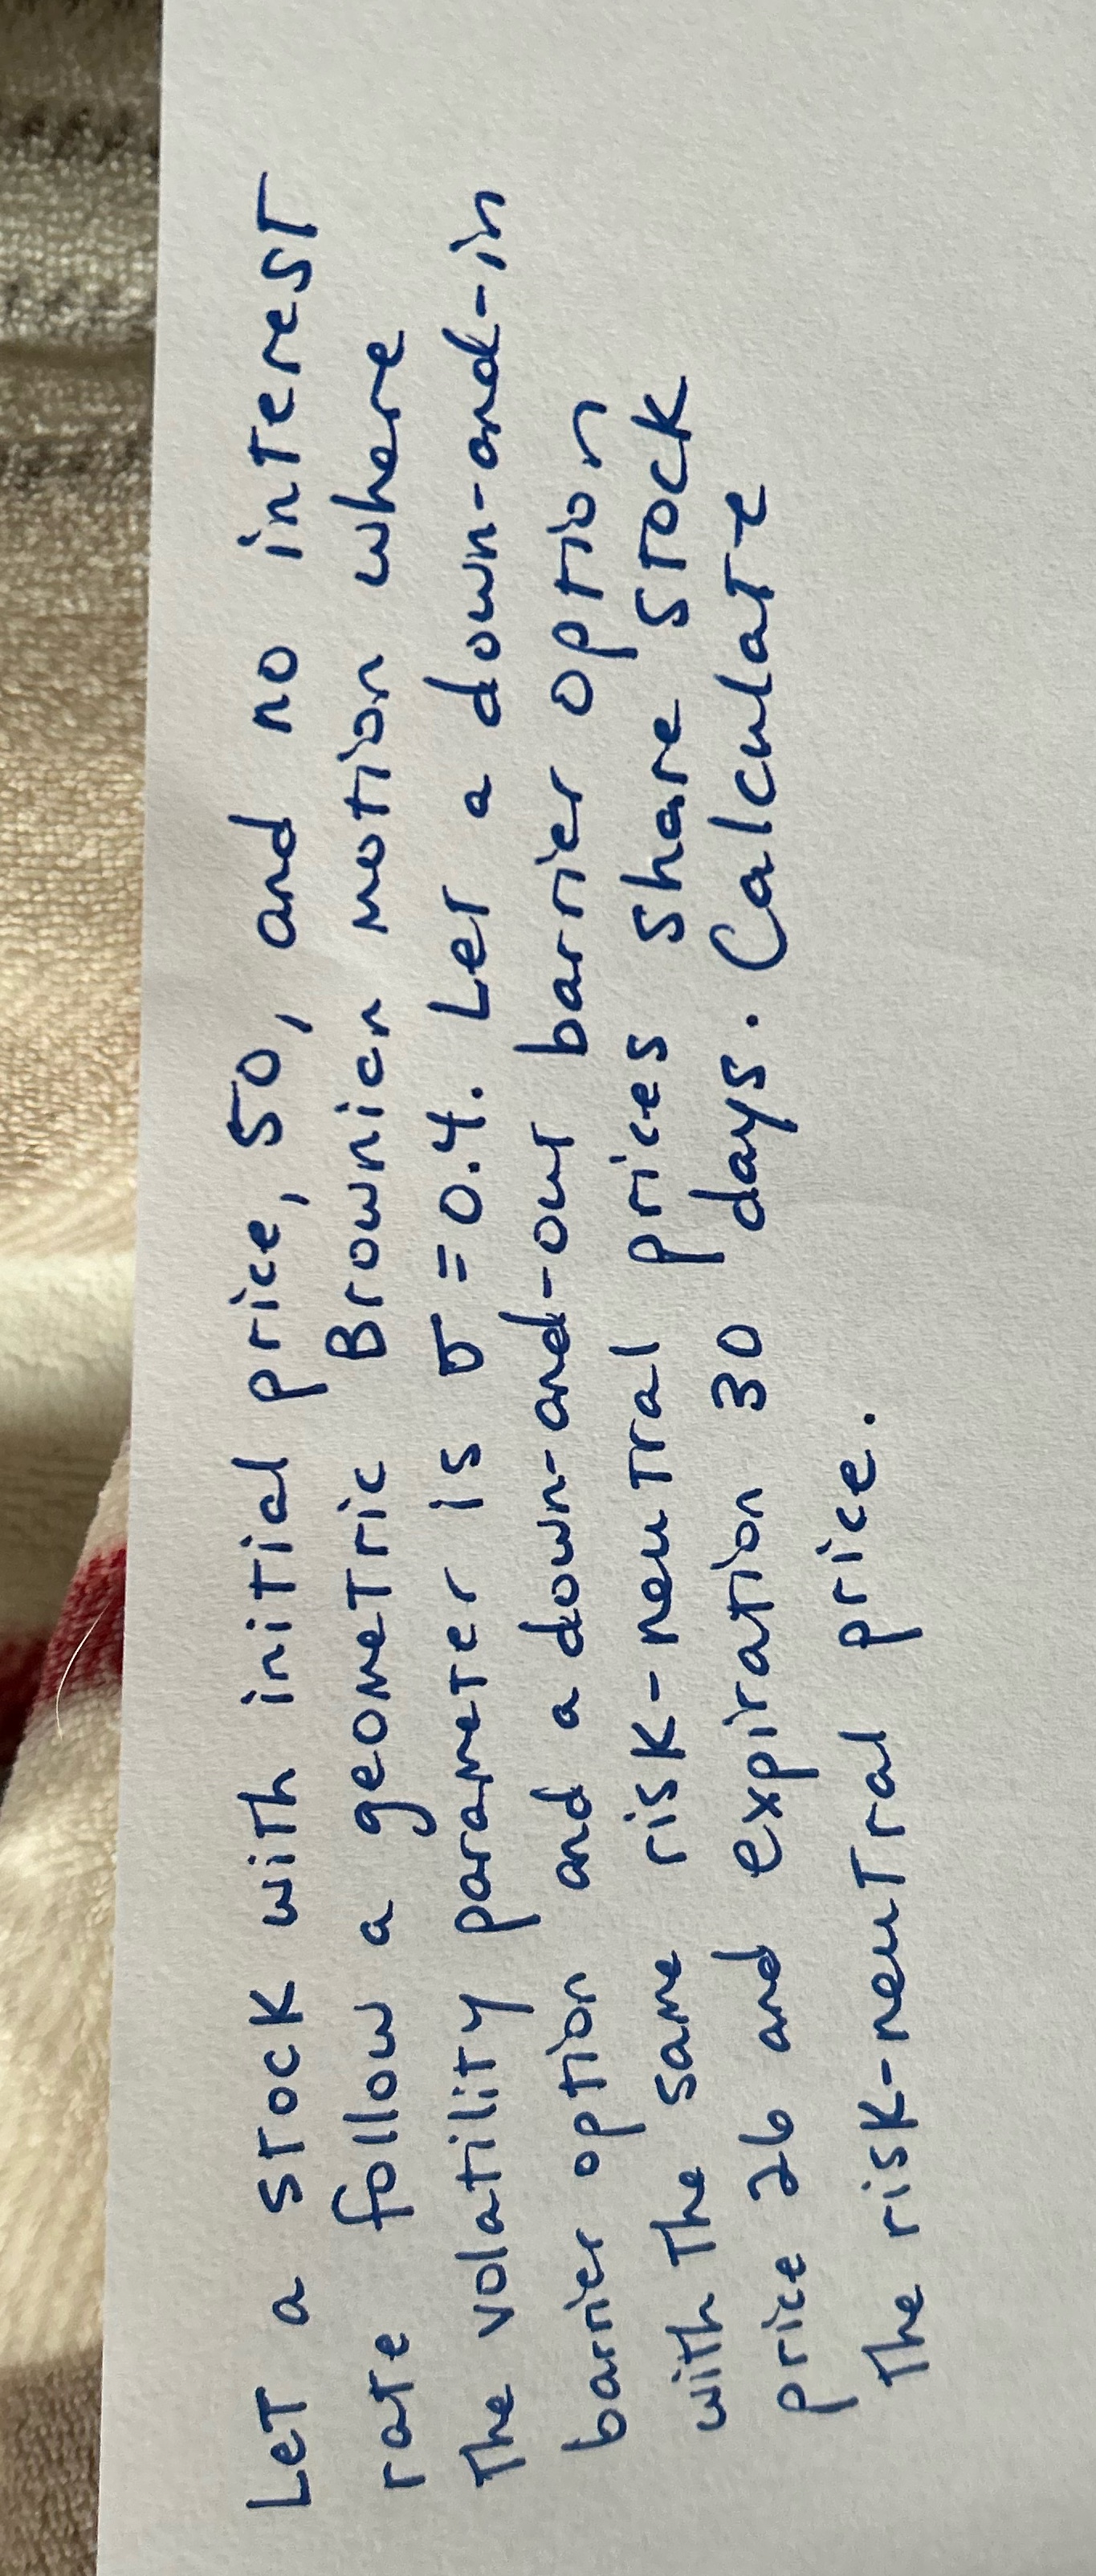 Let a stock with initial price, 50, and no interest
rate follow a geometric Brownian motion where
the volatility parameter is σ = 0.4. Let a down-and-in
barrier option and a down-and-out barrier option
with the same risk-neutral prices share stock
price 26 and expiration 30 days. Calculate
the risk-neutral price.